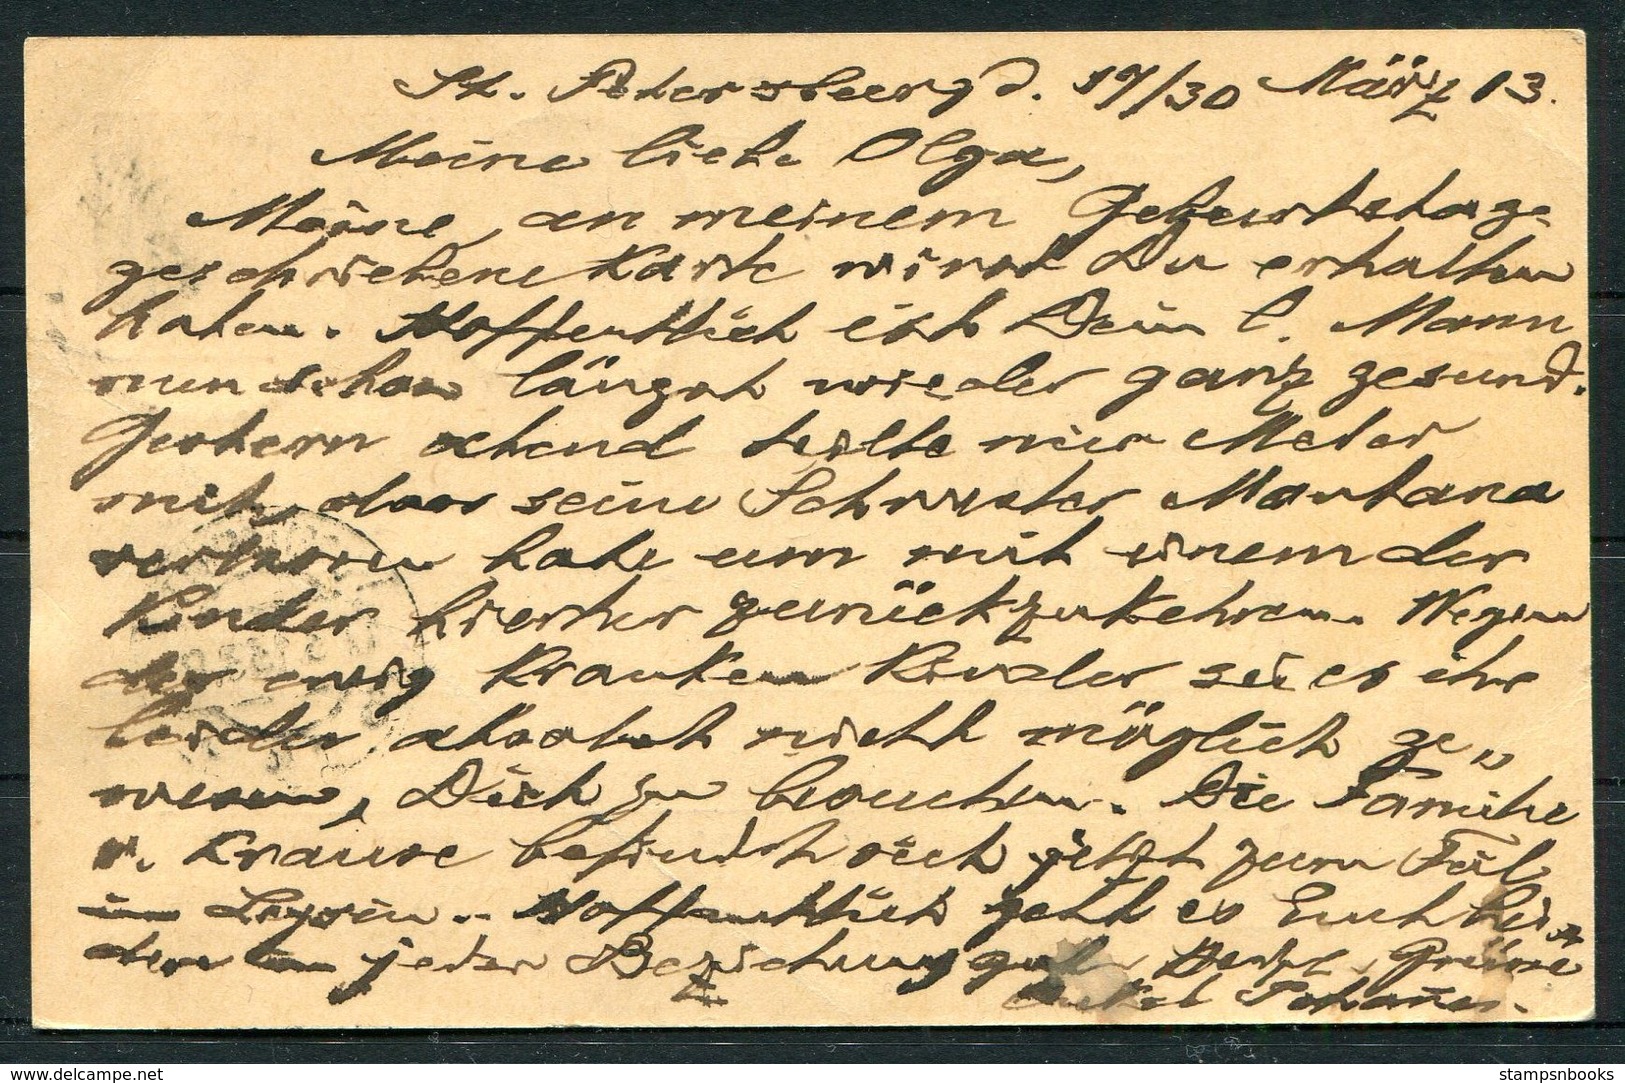 St. Petersburg d. 17/30 März 13.
Meine liebe Olga,
Meine, an meinem Geburtstage
geschriebene Karte wirst Du erhalten
haben. Hoffentlich ist Dein l. Mann
nun schon längst wieder ganz gesund.
Gestern abend teilte mir
mit, dass seine Schwester
verloren habe um mit einem der
Kinder hierher zurückzukehren. Wegen
der ewig kranken Kinder sei es ihr
leider absolut nicht möglich ge„
wesen, Dich zu besuchen. Die Familie
v. Krause befindet sich jetzt zum Teil
in Leysin.. Hoffentlich geht es Euch bei-
den in jeder Beziehung gut. Herzl. Grüsse
Onkel
stampsnbooks
www.delcampe.net